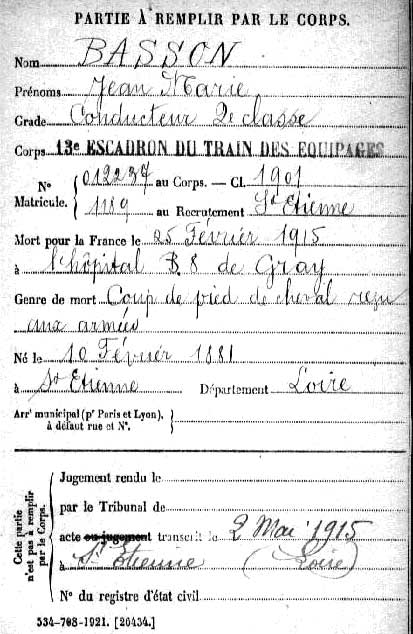 PARTIE À REMPLIR PAR LE CORPS.
Nom BASSON
Prénoms Jean Marie
Grade Conducteur 2e classe
Corps 13e ESCADRON DU TRAIN DES EQUIPAGES
N° Matricule. { 012237 au Corps. — Cl. 1901
1189 au Recrutement St Etienne
Mort pour la France le 25 Février 1915
à l'hôpital B 8 de Gray
Genre de mort Coup de pied de cheval reçu
aux armées
Né le 10 Février 1881
à St Etienne Département Loire
Arr' municipal (p' Paris et Lyon),
à défaut rue et N°.
Cette partie n'est pas à remplir par le Corps.
Jugement rendu le
par le Tribunal de
acte ou jugement transcrit le 2 Mai 1915
à St Etienne (Loire)
N° du registre d'état civil
534-708-1921. [26434.]